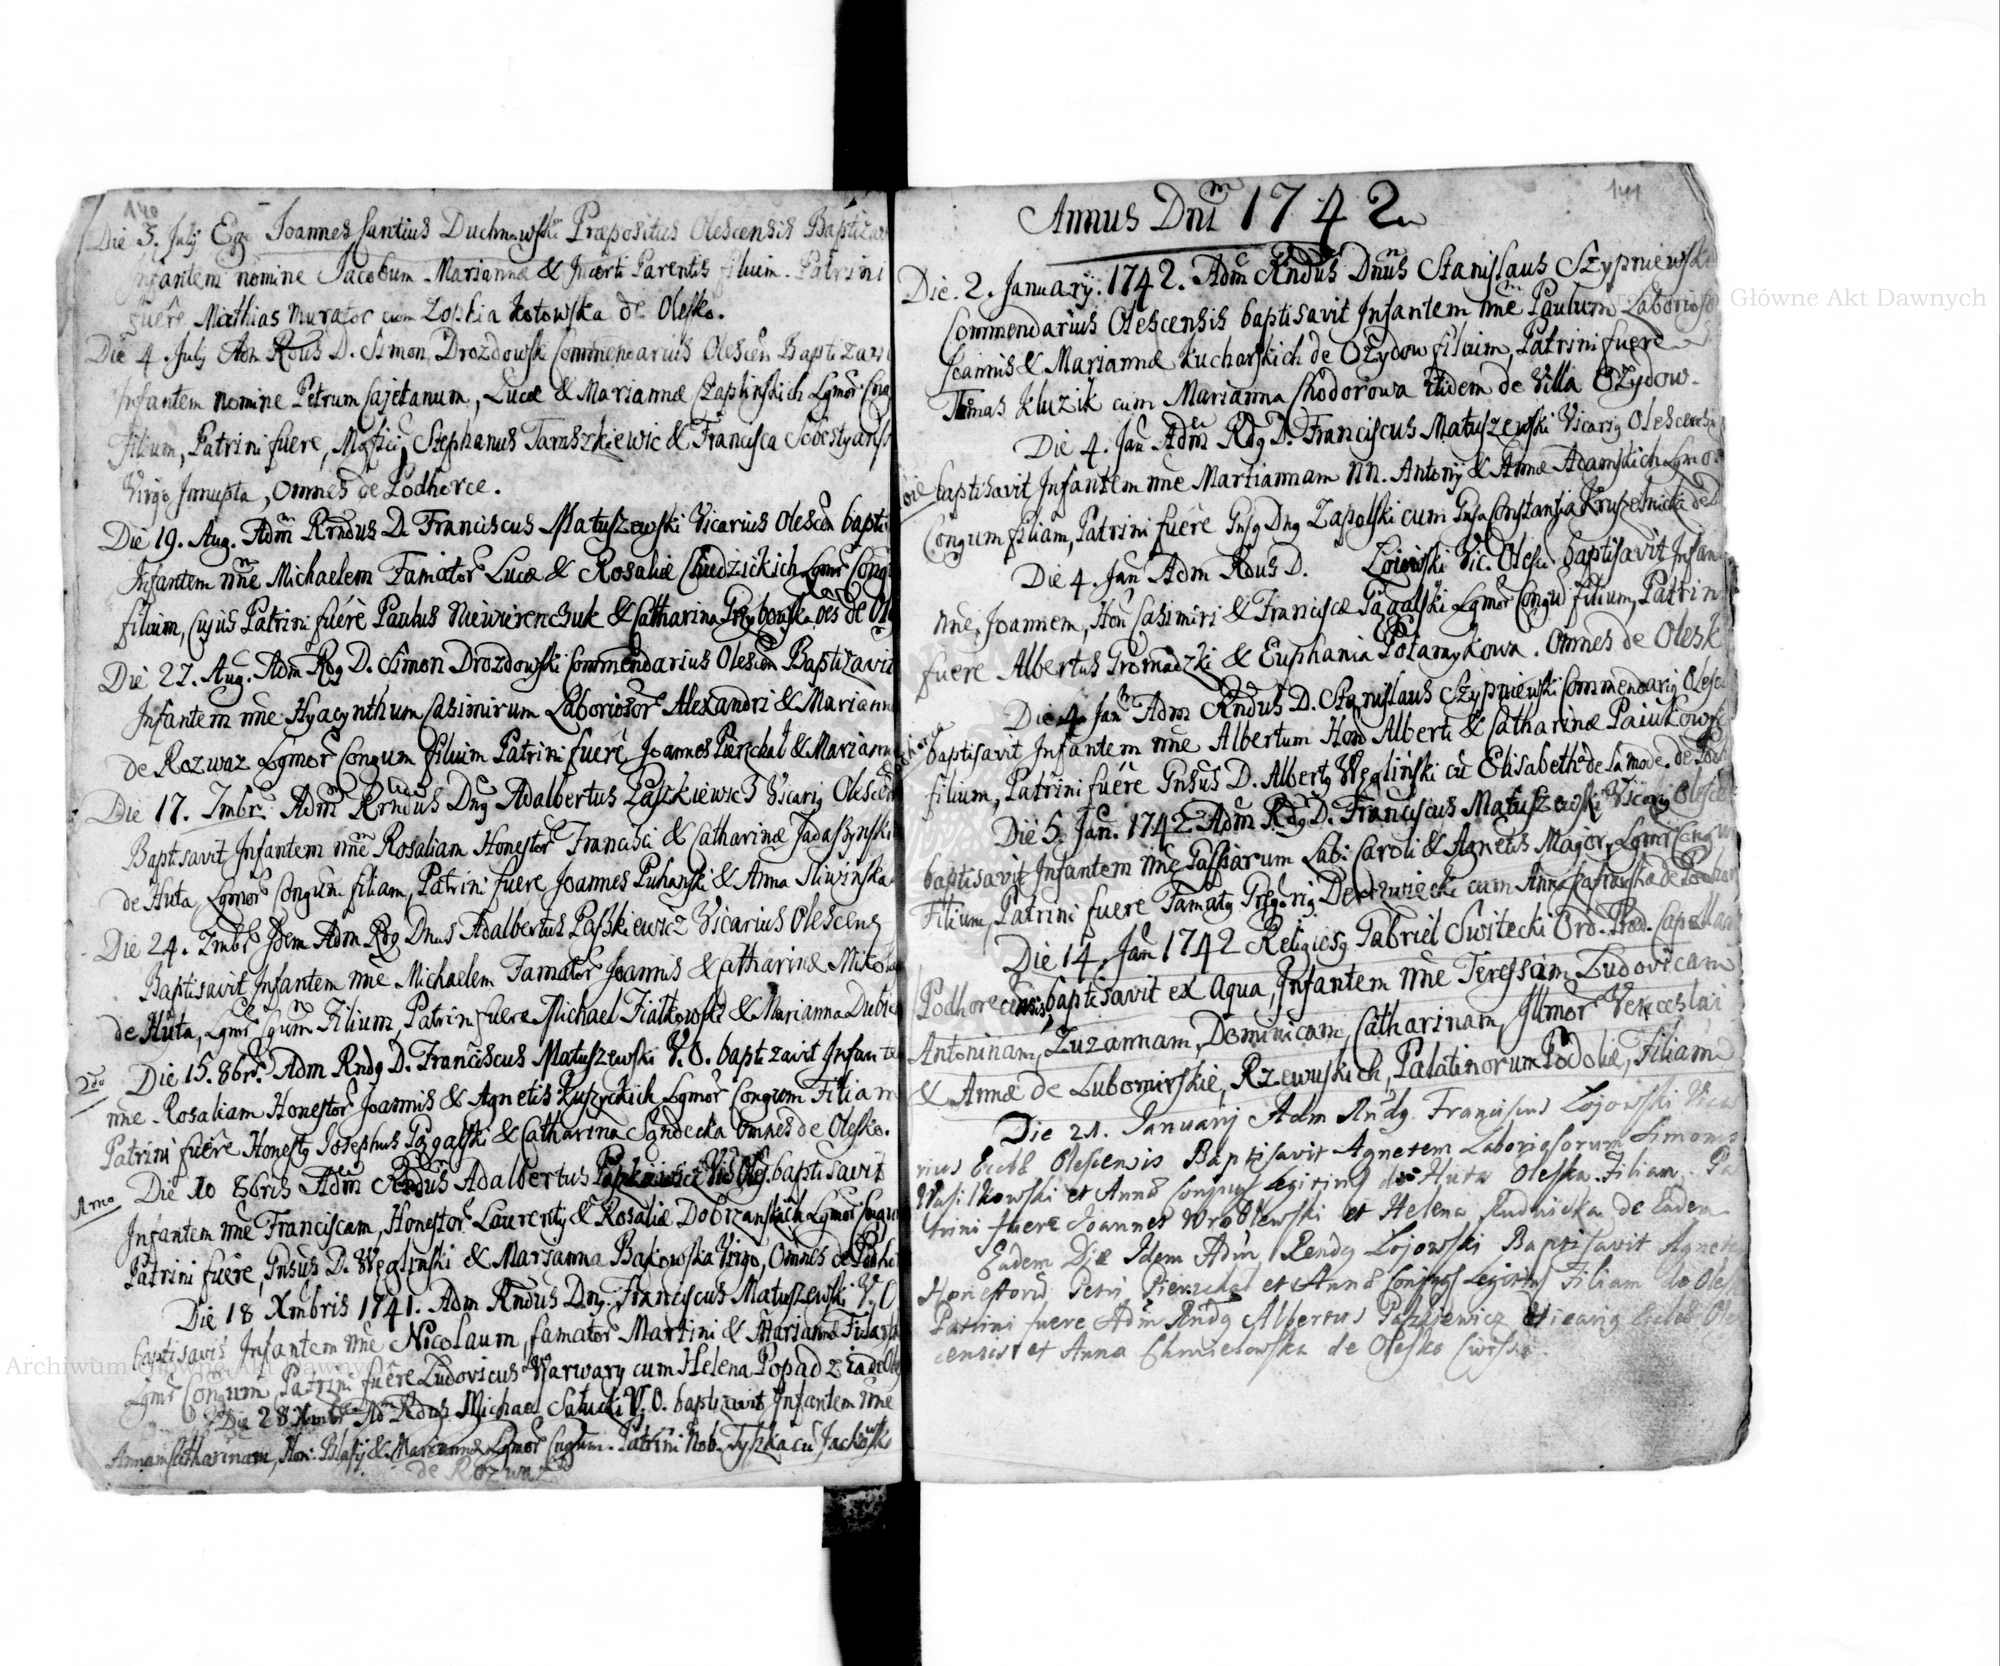 140
Die 3. July Ego Joannes Cantius Duchnowski Præpositus Olescensis Baptizavi
Infantem nomine Jacobum Mariannæ & Incerti Parentis filium. Patrini
fuere Mathias murator cum Zophia Kotowska de Olesko.
Die 4. July Adm Rdus D. Simon Drozdowski Commendarius Olescen Baptizavi
Infantem nomine Petrum Cajetanum, Lucæ & Mariannæ Czaplinskich Lgmor Cong
Filium, Patrini fuere, Mgfici Stephanus Tomaszkiewic & Francisca
Virgo Innupta, omnes de Podhorce.
Die 19. Aug. Adm Rrndus D. Franciscus Matuszewski Vicarius Olescen bapti
Infantem nne Michaelem Famator Lucæ & Rosaliæ Chudzickich Lgmr Cong
filium, Cujus Patrini fuere Paulus & Catharina Grzybowska oes de
Die 27. Aug. Adm Rdg D. Simon Drozdowski Commendarius Olescen Baptizavit
Infantem nne Hyacynthum Casimirum Laboriosor Alexandri & Mariann
de Rozwaz Lgmor Congum filium Patrini fuere Joannes Pierzchal & Mariann
Die 17. 7mbr. Adm Rrndus Dng Adalbertus Paszkiewicz Vicarig Olescen
Baptisavit Infantem nne Rosaliam Honestor Francisci & Catharinæ
de Huta, Lgmor Congum filiam, Patrini fuere Joannes Puhanski & Anna Sliwinska
Die 24. 7mbr Idem Adm Rdg Dnus Adalbertus Paszkiewicz Vicarius Olescens
Baptisavit Infantem nne Michaelem Famator Joannis & Catharinæ
de Huta, Lgmr Cgum Filium, Patrini fuere Michael Fialkowski & Marianna
2do Die 15. 8br. Adm Rndg D. Franciscus Matuszewski V.O. baptizavit Infante
nne Rosaliam Honestor Joannis & Agnetis Lgmor Congum Filiam
Patrini fuere Honestg Josephus Gągalski & Catharina Sandecka omnes de Olesko.
Die 10 8bris Adm Rndus Adalbertus Paszkiewicz Vic Oles. baptisavit
Infantem nne Franciscam, Honestor Laurenty & Rosaliæ Dobrzanskich Lgmor Congum
Patrini fuere, Gnsus D. Węglinski & Marianna Bąkowska Virgo, Omnes de Podhor
Die 18 Xmbris 1741. Adm Rndus Dng. Franciscus Matuszewski V. O
baptisavit Infantem nne Nicolaum, famator Martini & Mariannæ
Lgmr Congum, Patrini fuere Ludovicus Warwary cum Helena Popadzia de
Die 28 Xmbr Ad Rdus Michael V. O. baptizavit Infantem nne
Annam Catharinam, Hon: Blasij & Mariannæ Lgmor Cngum. Patrini Nob. Tyszka cu
de Rozwaz
141
Annus Dni 1742
Die. 2. January. 1742. Adm Rndus Dnus Stanislaus Szypniewski
Commendarius Olescensis baptisavit Infantem nne Paulum Laborioso
Joannis & Mariannæ Kucharskich de Ożydow filium, Patrini fuere
Thomas Kluzik cum Marianna Chodorowa itidem de Villa Ożydow.
Die 4. Jan Adm Rdg D. Franciscus Matuszewski Vicarig Olescensis
baptisavit Infantem nne Martiannam NN. Antonij & Annæ Adamskich Lgmor
Congum filiam, Patrini fuere Gnsg Dng Zapolski cum Gnsa Constantia Kruszelnicka de
Die 4. Jan Adm Rdus D. Lojowski Vic. Olesc. baptisavit Infan
nne, Joannem, Hon Casimiri & Franciscæ Gągalski Lgmor Congu filium, Patrin
fuere Albertus Gromadzki & Euphania Potamykowa. Omnes de Olesk
Die 4. Jan Adm Rndus D. Stanislaus Szypniewski Commendarig Olesc
baptisavit Infantem nne Albertum Hon Alberti & Catharinæ
filium, Patrini fuere Gnsus D. Albertg Węglinski cu Elisabetha de la mode. de Podh
Die 5. Jan. 1742 Adm Rdg D. Franciscus Matuszewski Vicarig Olesce
baptisavit Infantem nne Gasparum Lab. Caroli & Agnetis Major, Lgmr Congum
Filium, Patrini fuere Famatg Gregorig Derewiecki cum Anna de Podhor
Die 14. Jan 1742 Religiosg Gabriel Switecki Ord. Præd. Capellan
Podhorecensis, baptisavit ex aqua, Infantem nne Teressam Ludovicam
Antoninam, Zuzannam, Dominicam, Catharinam, Illmor Venceslai
& Annæ de Lubomirskie, Rzewuskich, Palatinorum Podoliæ, Filiam
Die 21. Januarij Adm Rndg Franciscus Lojowski Vica
rius Eccl Olescensis Baptisavit Agnetem Laboriosorum Simonis
Wasilkowski et Annæ Conjug Legitimg de Huta Oleska. Filiam. Pa
trini fuere Joannes Wroblewski et Helena Rudnicka de Eadem
Eadem Die Idem Adm Rendg Lojowski Baptisavit Agnetem
Honestoru Petri Pierzchal et Annæ Conjug Legitimg Filiam de Oles
Patrini fuere Adm Rndg Albertus Paszkiewicz Vicarig Eccl Ole
censis et Anna Chmielowska de Olesko